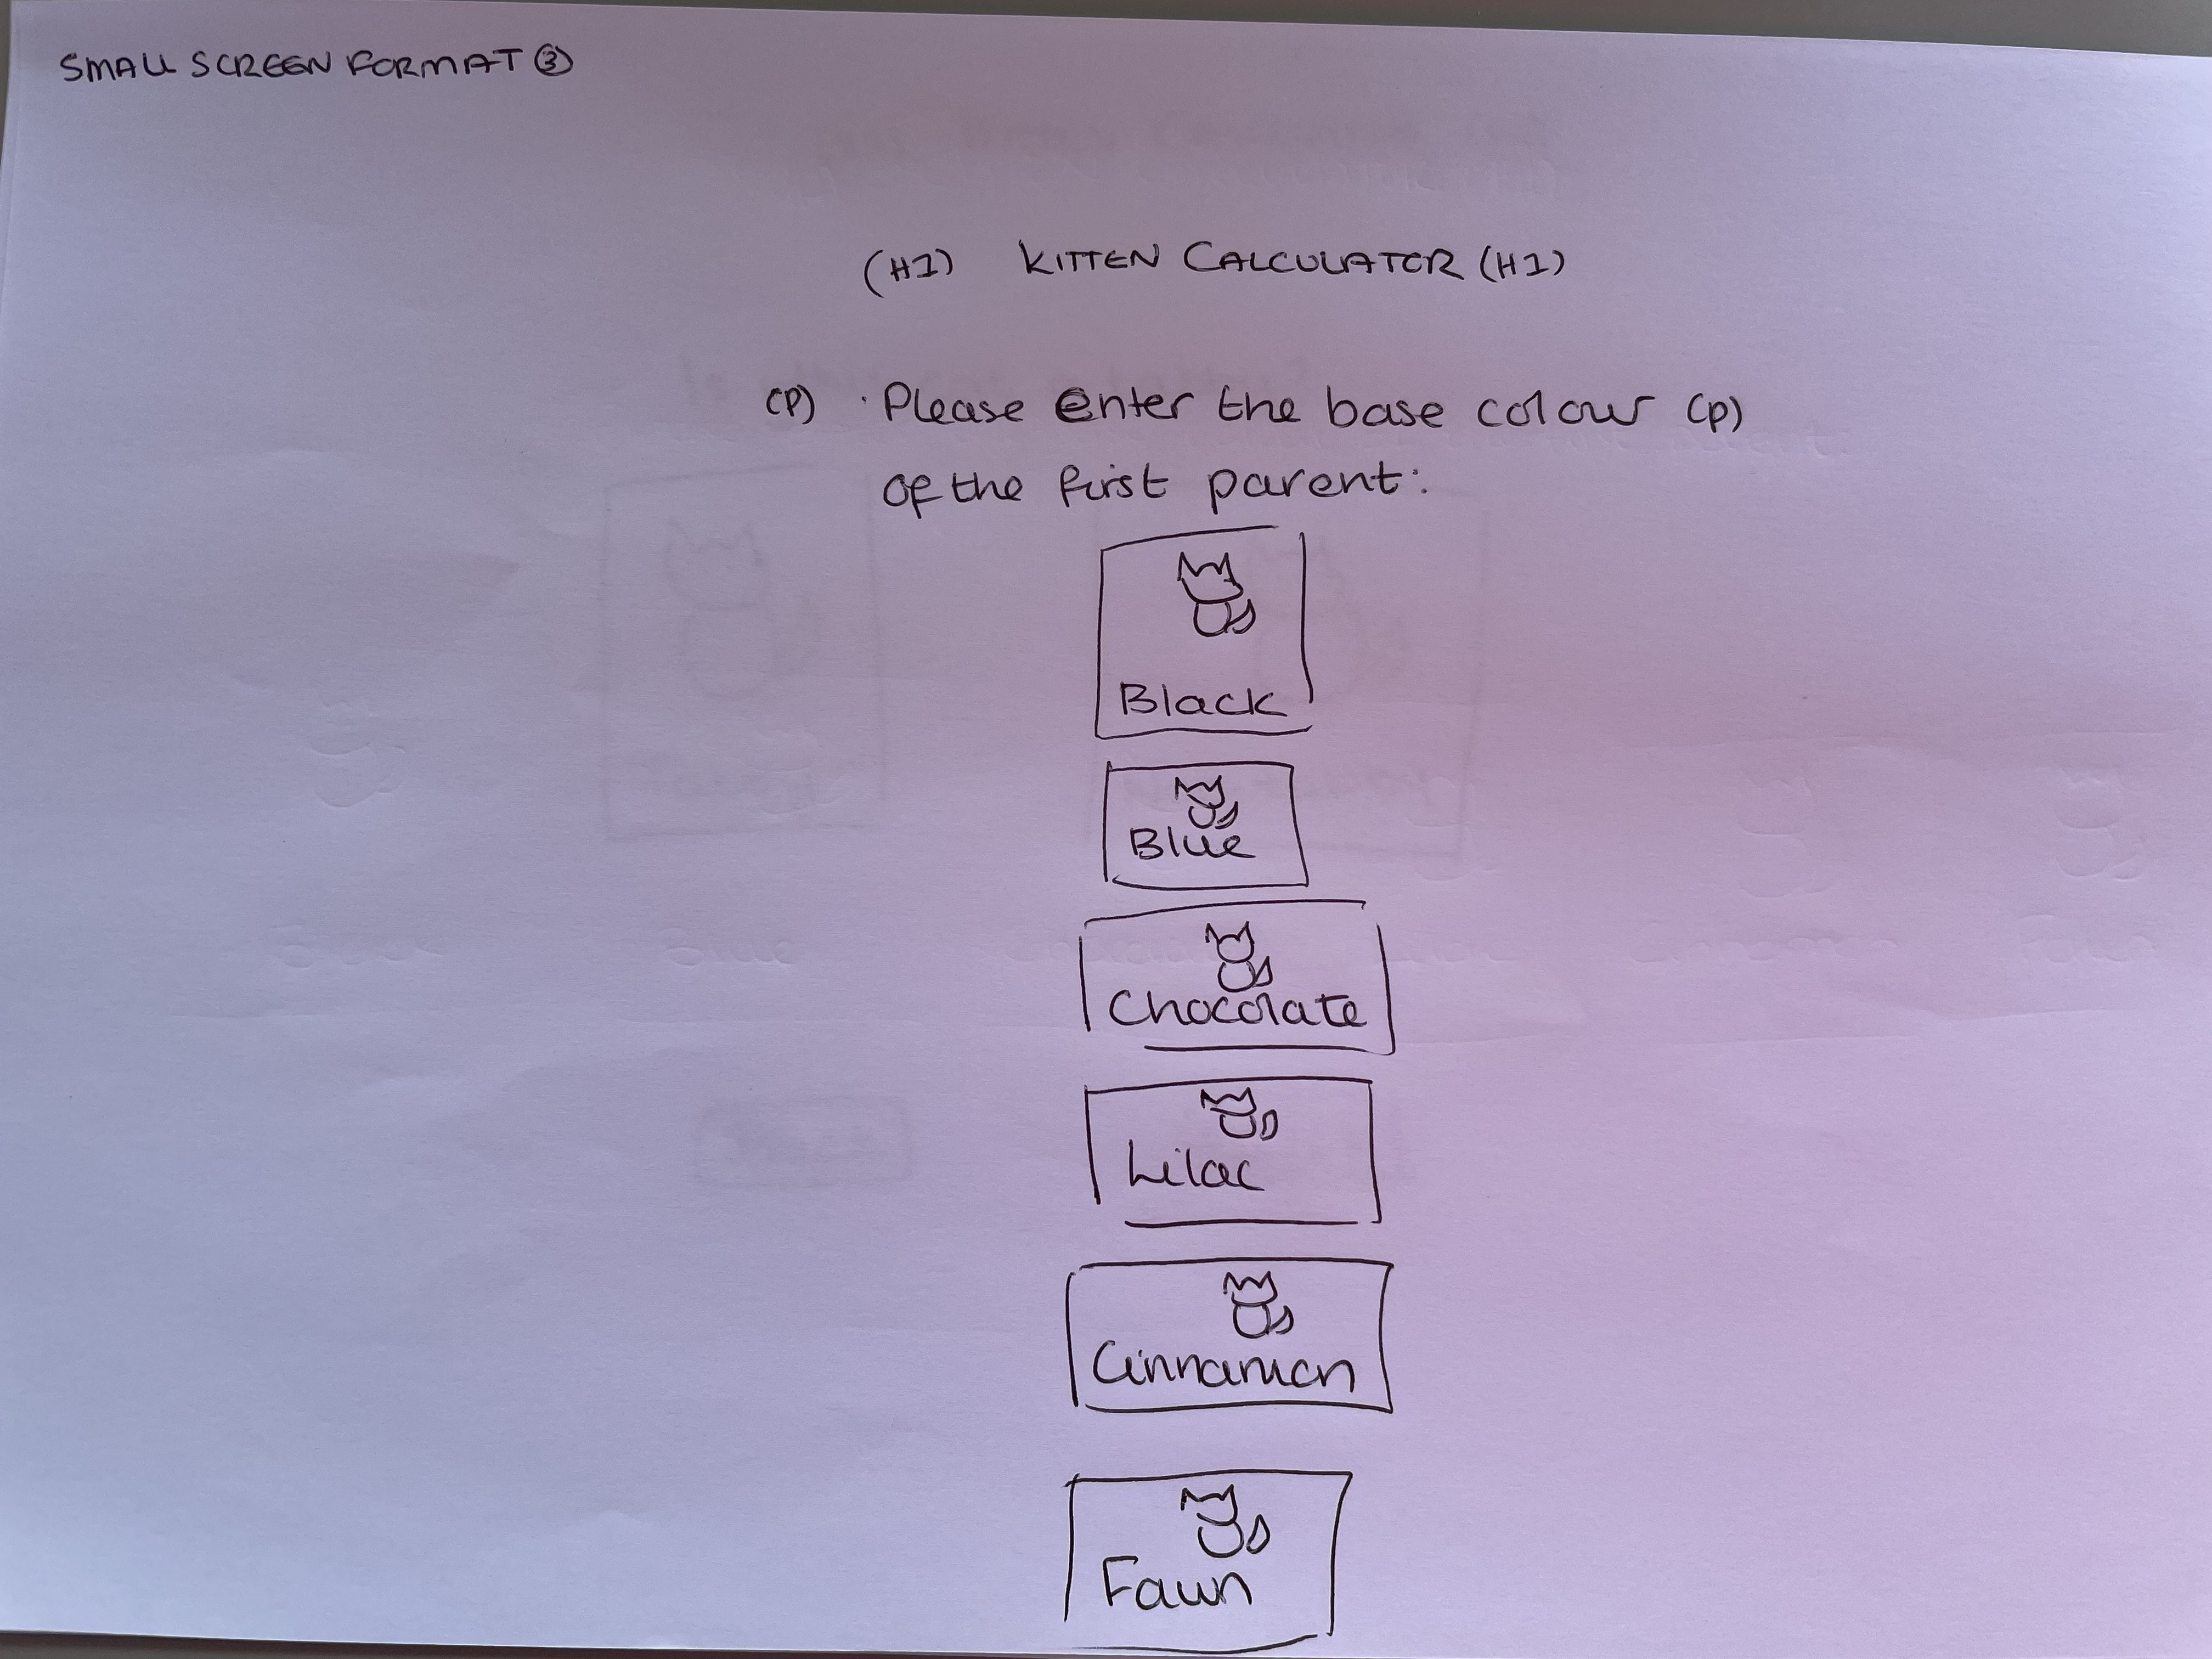 SMALL SCREEN FORMAT ③
(H1) KITTEN CALCULATOR (H1)
(P) · Please enter the base colour (P)
of the first parent:
Black
Blue
Chocolate
Lilac
Cinnamon
Fawn